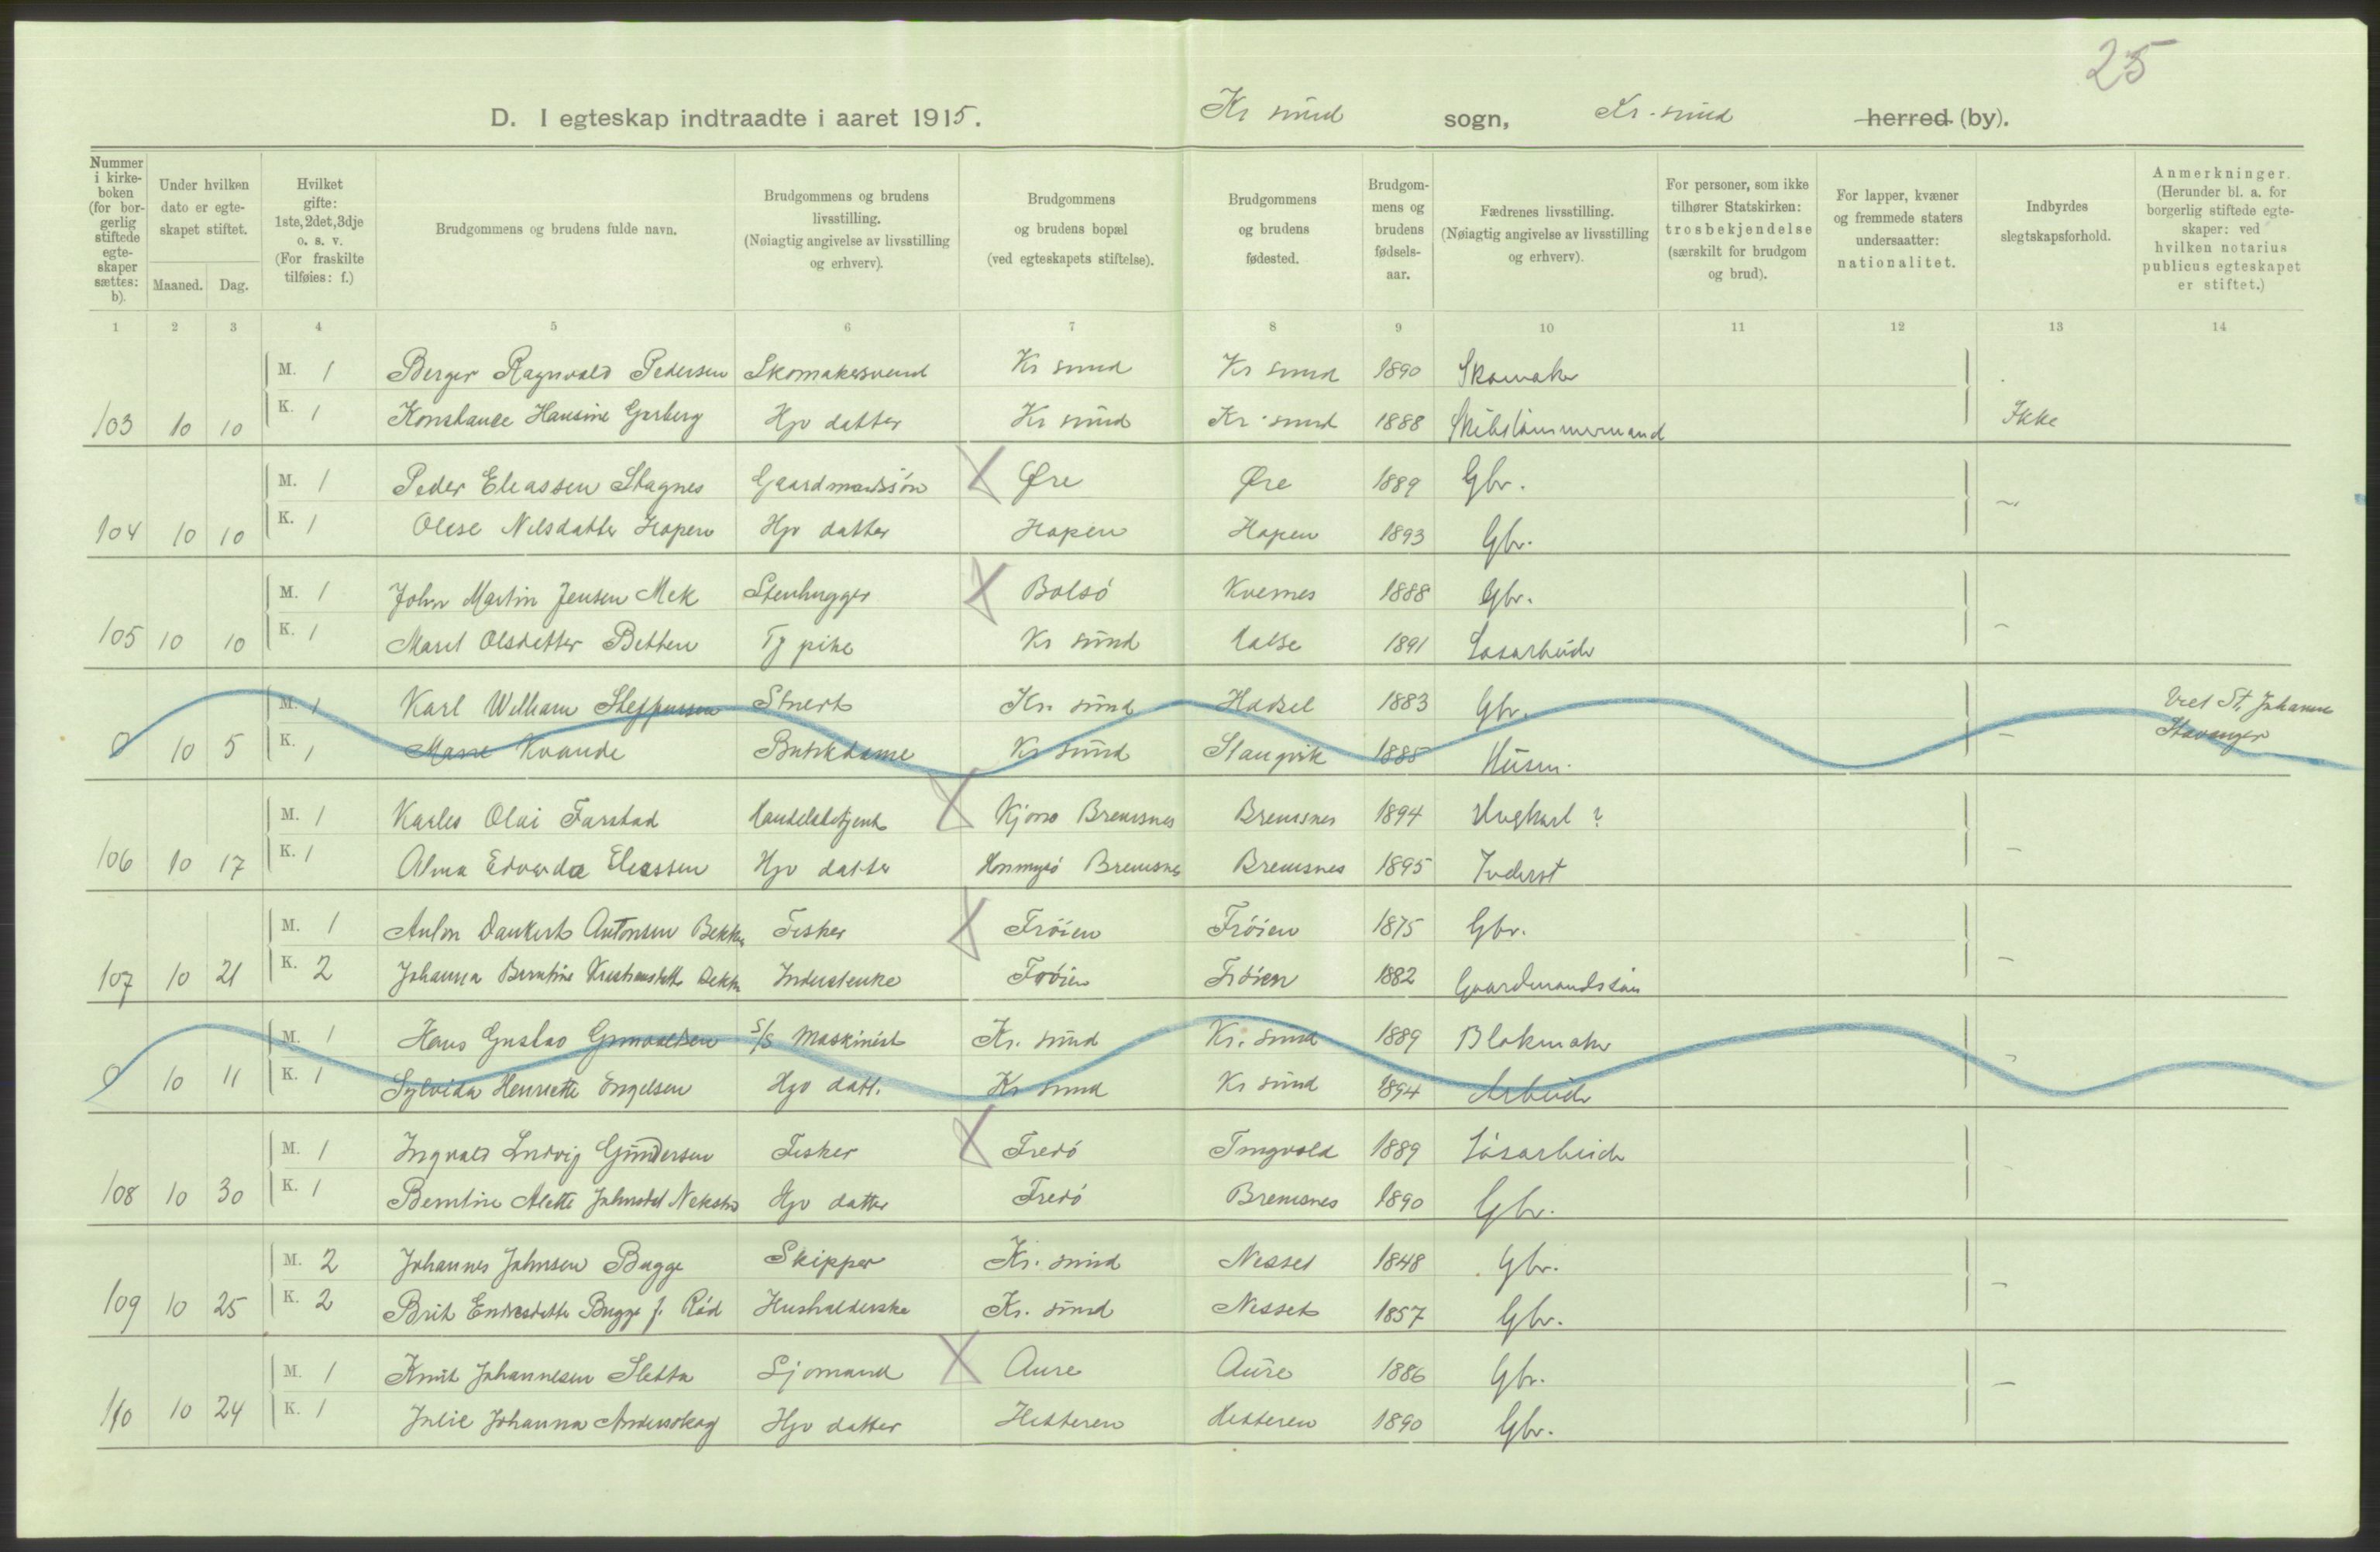 25
D. I egteskap indtraadte i aaret 1915. Kr sund sogn, Kr. sund herred (by).
Nummer i kirkeboken (for borgerlig stiftede egteskaper sættes: b).
Under hvilken dato er egteskapet stiftet.
Maaned. Dag.
Hvilket gifte: 1ste, 2det, 3dje o. s. v. (For fraskilte tilføies: f.)
Brudgommens og brudens fulde navn.
Brudgommens og brudens livsstilling. (Nøiagtig angivelse av livsstilling og erhverv).
Brudgommens og brudens bopæl (ved egteskapets stiftelse).
Brudgommens og brudens fødested.
Brudgommens og brudens fødselsaar.
Fædrenes livsstilling. (Nøiagtig angivelse av livsstilling og erhverv).
For personer, som ikke tilhører Statskirken: trosbekjendelse (særskilt for brudgom og brud).
For lapper, kvæner og fremmede staters undersaatter: nationalitet.
Indbyrdes slegtskapsforhold.
Anmerkninger. (Herunder bl. a. for borgerlig stiftede egteskaper: ved hvilken notarius publicus egteskapet er stiftet.)
1 2 3 4 5 6 7 8 9 10 11 12 13 14
M. 1 Berger Ragnvald Pedersen Skomakersvend Kr sund Kr sund 1890 Skomaker
103 10 10 K. 1 Konstance Hansine Garberg Hjv datter Kr sund Kr. sund 1888 Skibstømmermand Ikke
M. 1 Peder Eleassen Stagnes Gaardmandssøn Øre Øre 1889 Gbr.
104 10 10 K. 1 Olise Nilsdatter Hopen Hjv datter Hopen Hopen 1893 Gbr. —
M. 1 John Martin Jensen Mek Stenhugger Bolsø Kvernes 1888 Gbr.
105 10 10 K. 1 Maret Olsdatter Betten Tj pike Kr sund Halse 1891 Løsarbeider —
M. 1 Karl William Steffensen Stuert Kr. sund Hadsel 1883 Gbr. Viet St. Johannes
0 10 5 K. 1 Kvande Butikdame Kr sund Stangvik 1885 Husm. — Stavanger
M. 1 Karles Olai Farstad Handelsbetjent Bremsnes Bremsnes 1894 ?
106 10 17 K. 1 Alma Edvarda Eleassen Hjv datter Bremsnes Bremsnes 1895 Inderst —
M. 1 Anton Dankert Antonsen Bekken Fisker Frøien Frøien 1875 Gbr.
107 10 21 K. 2 Johanna Berntine Kristiansdatter Bekken Inderstenke Frøien Frøien 1882 Gaardmandssøn —
M. 1 Hans Gustav S/S Maskinist Kr. sund Kr. sund 1889 Blokmaker
0 10 11 K. 1 Sylvida Henriette Engelsen Hjv datt. Kr sund Kr sund 1894 Arbeider —
M. 1 Ingvald Ludvig Gundersen Fisker Fredø Tingvold 1889 Løsarbeider
108 10 30 K. 1 Berntine Alette Johnsdat Hjv datter Fredø Bremsnes 1890 Gbr.
M. 2 Johannes Johnsen Bugge Skipper Kr. sund Nesset 1848 Gbr.
109 10 25 K. 2 Brit Endresdatter Bugge f. Rød Husholderske Kr. sund Nesset 1857 Gbr. —
M. 1 Knut Johannesen Sletta Sjømand Aure Aure 1886 Gbr.
110 10 24 K. 1 Julie Johanna Anderskog Hjv datter Hitteren Hitteren 1890 Gbr. —